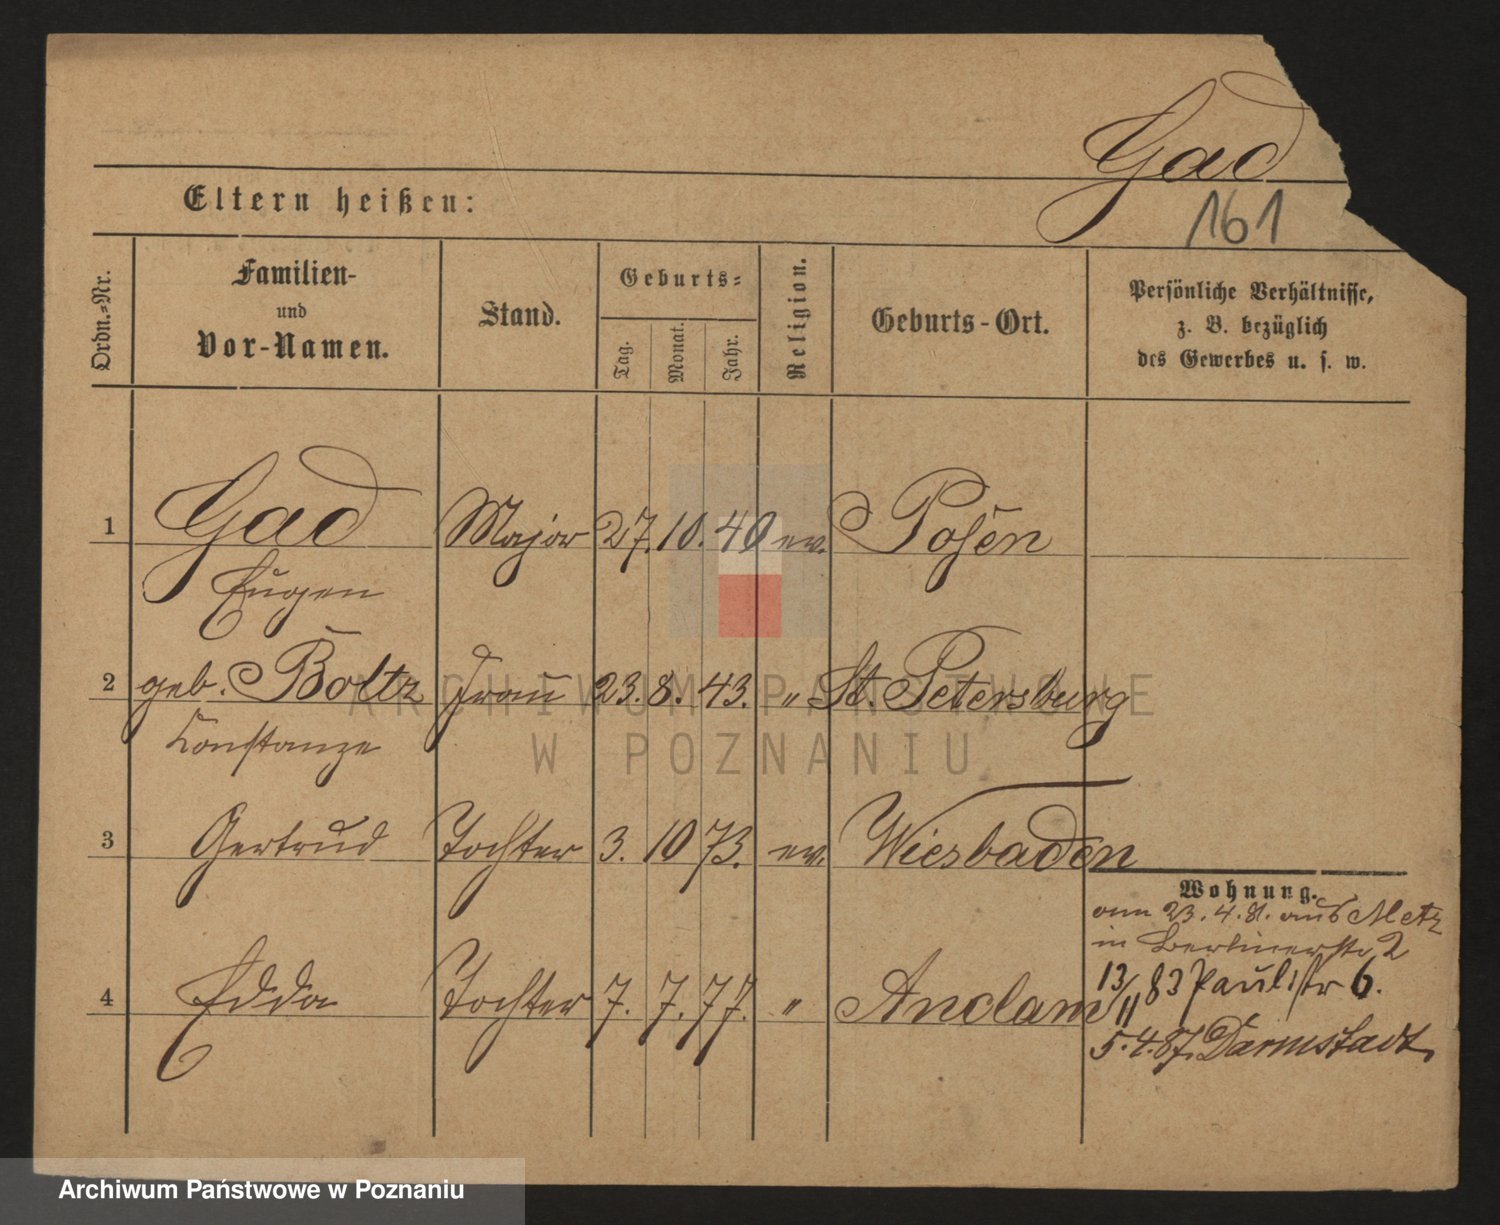 Gad
161
Eltern heißen:
Ordn.-Nr.
Familien-
und
Vor-Namen.
Stand.
Geburts-
Tag.
Monat.
Jahr.
Religion.
Geburts-Ort.
Persönliche Verhältnisse,
z. B. bezüglich
des Gewerbes u. s. w.
1 Gad Major 27. 10. 40 ev. Posen
Eugen
2 geb. Boltz Frau 23. 8. 43. " St. Petersburg
Constanze
3 Gertrud Tochter 3. 10 73. ev. Wiesbaden
Wohnung.
23. 4. 81. aus Metz
in Berlinerstr 2
4 Edda Tochter 7. 7. 77. " Anclam
13/11 83 Paulistr 6.
5. 4. 87. Darmstadt.
ARCHIWUM PAŃSTWOWE
W POZNANIU
Archiwum Państwowe w Poznaniu